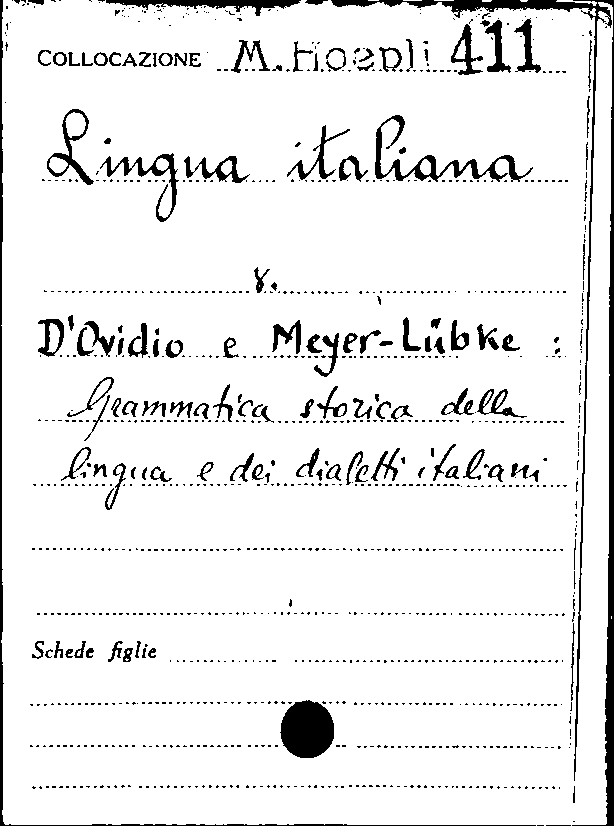 COLLOCAZIONE M. Hoepli 411
Lingua italiana
v.
D'Ovidio e Meyer-Lübke :
Grammatica storica della
lingua e dei dialetti italiani
Schede figlie